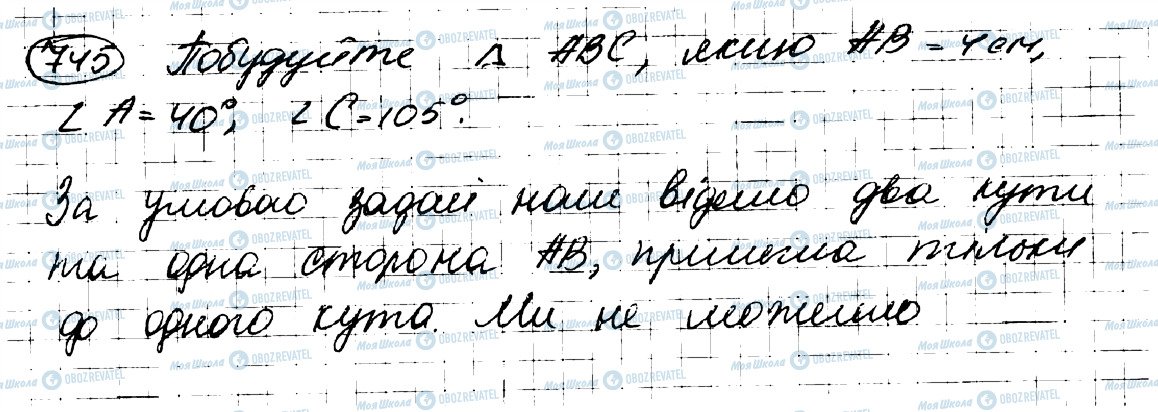 745 Побудуйте △ ABC, якщо AB = 4 см,
∠ A = 40°, ∠ C = 105°.
За умовою задачі нам відомо два кути
та одна сторона AB, прилегла тільки
до одного кута. Ми не можемо